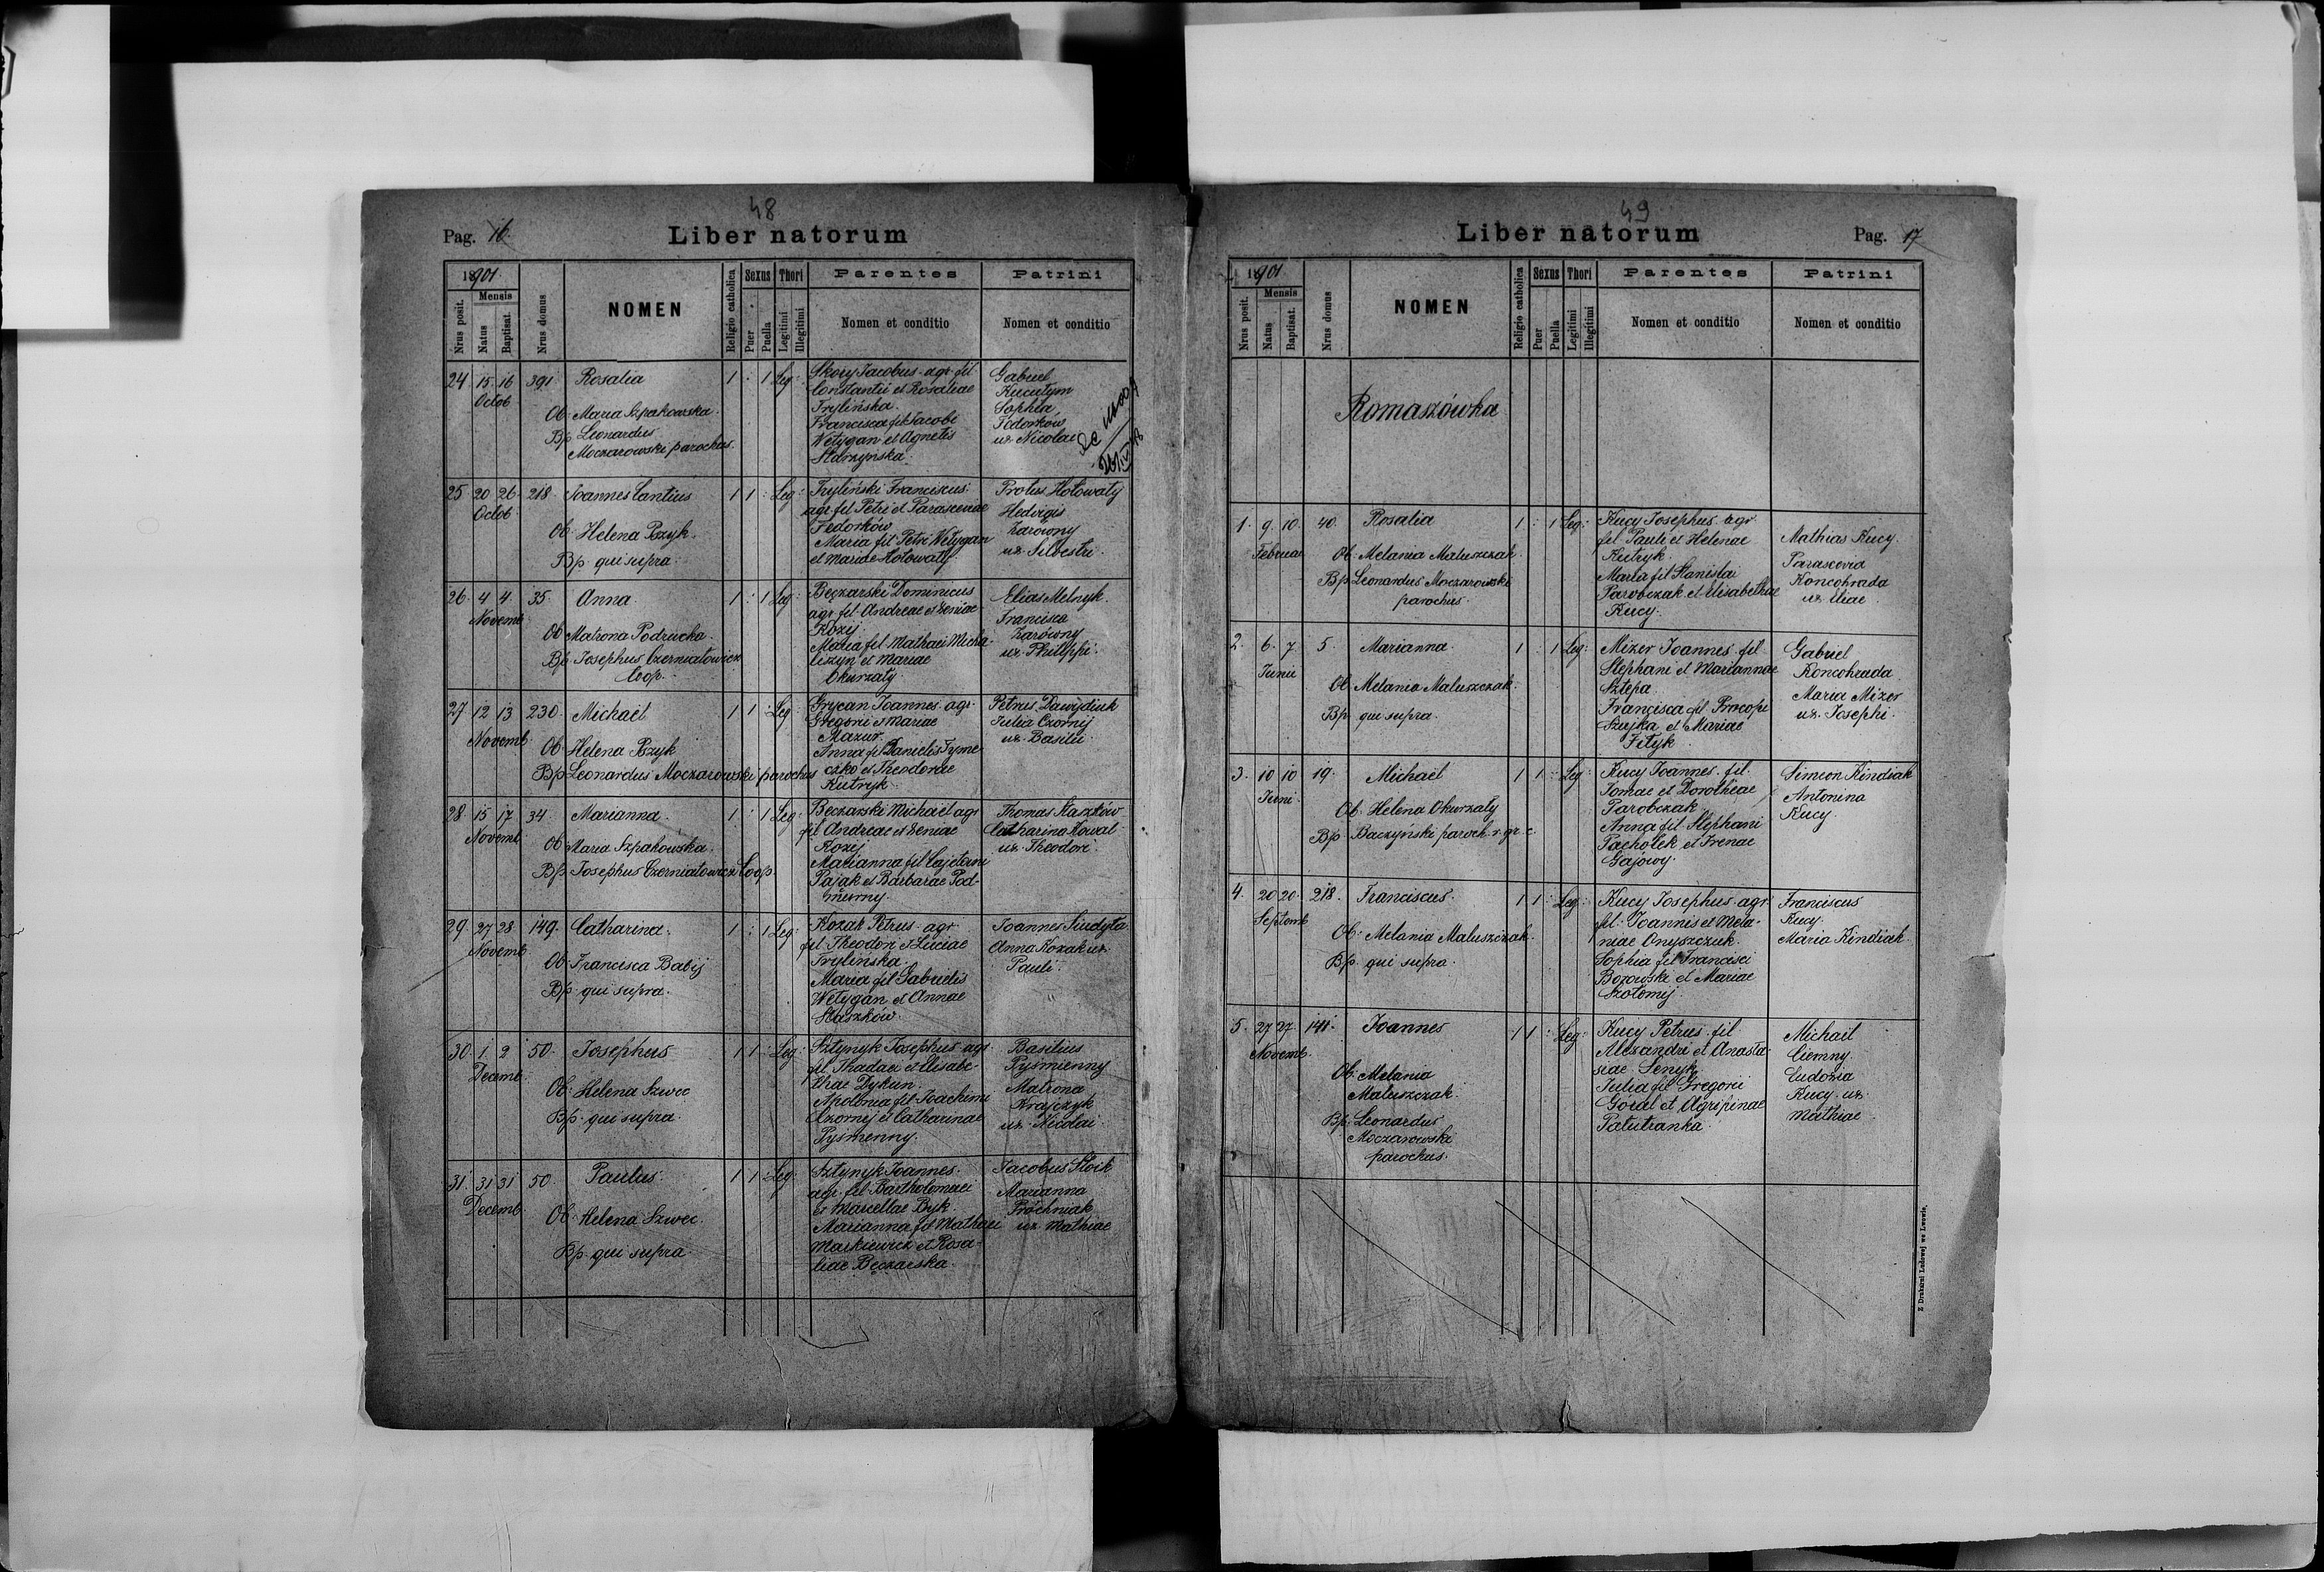 48
Pag. 16.
Liber natorum
1901
Mensis
Nrus posit.
Natus
Baptisat.
Nrus domus
NOMEN
Religio catholica
Sexus
Puer
Puella
Thori
Legitimi
Illegitimi
Parentes
Nomen et conditio
Patrini
Nomen et conditio
24 15 16 391 Rosalia 1 : 1 Leg:
Octob
Ob: Maria Szpakowska.
Bp. Leonardus
Moczarowski parochus.
Skory Jacobus agr. fil
Constantii et Rosaliae
Trylińska.
Francisca fil Jacobi
Wetygan et Agnetis
Starzynska.
Gabriel
Kucutym
Sophia
Fedorków
ux. Nicolai
25 20 26 218 Joannes Cantius 1 1 : Leg:
Octob
Ob: Helena Pszyk.
Bp. qui supra.
Tryliński Franciscus
agr. fil Petri et Parasceviae
Fedorków
Maria fil Petri Wetygan
et Mariae Hotowaty.
Protus Hotowaty
Hedvigis
Zarowny
ux. Silvestri.
26. 4 4. 35. Anna. 1 : 1 Leg:
Novemb
Ob Matrona Podrucka.
Bp. Josephus Czerniatowicz
Coop.
Bęczarski Dominicus
agr. fil. Andreae et Xeniae
Kozij.
Maria fil Mathaei Micha-
liszyn et Mariae
Okurzaty
Elias Melnyk.
Francisca
Zarowny
ux. Philippi.
27 12 13 230. Michaël 1 1 : Leg
Novemb.
Ob Helena Pszyk
Bp. Leonardus Moczarowski parochus
Grycan Joannes. agr.
Gregorii et Mariae
Mazur.
Anna fil Danielis Tyme-
czko et Theodorae
Kutryk.
Petrus Dawydiuk
Julia Czornij
ux. Basilii.
28. 15 17 34 Marianna. 1. : 1 Leg:
Novemb
Ob Maria Szpakowska.
Bp. Josephus Czerniatowicz Coop.
Bęczarski Michaël agr
fil Andreae et Xeniae
Kozij
Marianna fil Cajetani
Pająk et Barbarae Pod-
murny.
Thomas Staszków
Catharina Kowal
ux. Theodori.
29. 27 28 149. Catharina. 1 : 1 Leg:
Novemb
Ob Francisca Babij
Bp. qui supra.
Kozak Petrus agr.
fil Theodori et Luciae
Trylińska.
Maria fil Gabrielis
Wetygan et Annae
Staszków.
Joannes Siudyta.
Anna Kozak ux.
Pauli.
30. 1. 2 50. Josephus 1 1 : Leg:
Decemb.
Ob. Helena Szwec
Bp. qui supra.
Sztynyk Josephus agr.
fil Thadaei et Elisabe-
thae Dykun.
Apolonia fil Joachimi
Czornij et Catharinae
Pysmenny.
Basilius
Pysmienny
Matrona
Krajczyk
ux. Nicolai
31. 31 31 50. Paulus. 1 1 : Leg:
Decemb
Ob. Helena Szwec.
Bp. qui supra.
Sztynyk Joannes.
agr. fil Bartholomaei
et Marcellae Byk.
Marianna fil Mathaei
Markiewicz et Rosa-
liae Bęczarska.
Jacobus Stoik
Marianna
Prochniak
ux. Mathiae
49
Liber natorum
Pag. 17
1901
Mensis
Nrus posit.
Natus
Baptisat.
Nrus domus
NOMEN
Religio catholica
Sexus
Puer
Puella
Thori
Legitimi
Illegitimi
Parentes
Nomen et conditio
Patrini
Nomen et conditio
Romaszówka
1. 9. 10. 40. Rosalia 1 : 1 Leg:
Februar
Ob: Melania Maluszczak.
Bp. Leonardus Moczarowski
parochus.
Kucy Josephus agr.
fil Pauli et Helenae
Kutryk.
Maria fil Stanislai
Parobczak et Elisabethae
Kucy.
Mathias Kucy.
Parascevia
Koncohrada
ux. Eliae.
2. 6. 7. 5. Marianna. 1 : 1 Leg:
Junii
Ob Melania Maluszczak.
Bp. qui supra.
Mizer Joannes fil
Stephani et Mariannae
Sztepa.
Francisca fil Procopi
Szujka et Mariae
Fityk.
Gabriel
Koncohrada
Maria Mizer
ux. Josephi.
3. 10 10 19. Michaël 1 1 : Leg:
Juni.
Ob. Helena Okurzaty
Bp. Baczyński paroch. r. gr. c.
Kucy Joannes. fil.
Tomae et Dorotheae
Parobczak.
Anna fil Stephani
Pachołek et Irenae
Gajowy.
Simeon Kindiak
Antonina
Kucy.
4. 20 20. 218. Franciscus. 1 1 : Leg:
Septemb
Ob: Melania Maluszczak.
Bp. qui supra.
Kucy Josephus agr
fil: Joannis et Mela-
niae Onyszczuk.
Sophia fil Francisci
Borowski et Mariae
Szotomij.
Franciscus
Kucy.
Maria Kindiak.
5. 27 27. 141. Joannes 1 1 : Leg:
Novemb.
Ob. Melania
Maluszczak.
Bp. Leonardus
Moczarowski
parochus.
Kucy Petrus fil
Alexandri et Anasta-
siae Senyk.
Julia fil Gregorii
Góral et Agripinae
Patutranka
Michaël
Ciemny.
Eudoxia
Kucy ux.
Mathiae
Z Drukarni Ludowej we Lwowie.